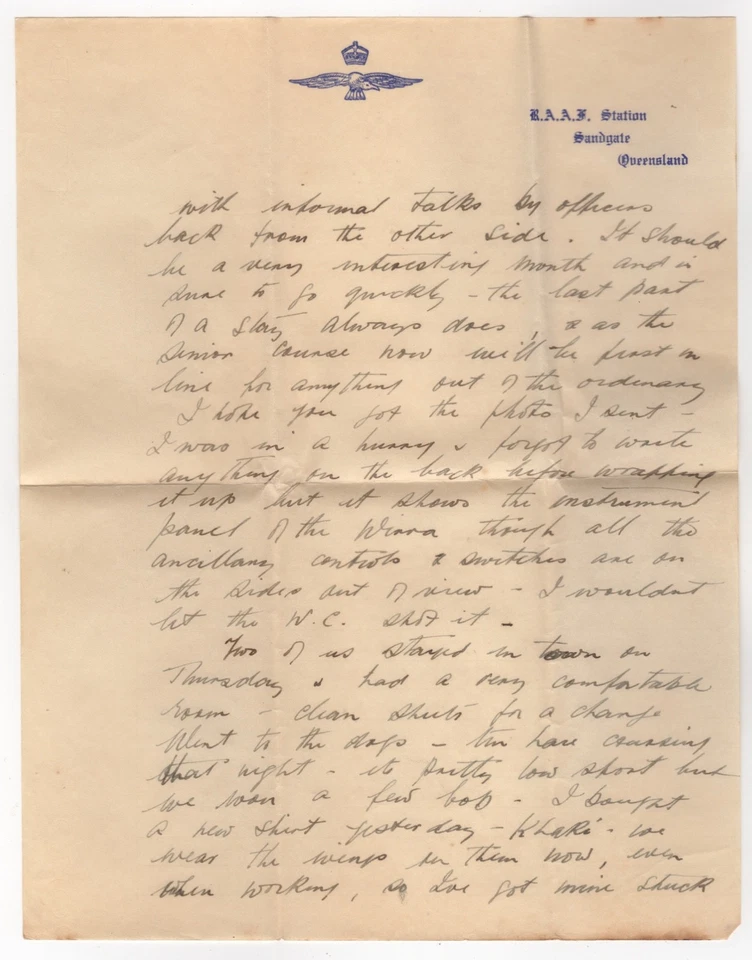 R.A.A.F. Station
Sandgate
Queensland
with informal talks by officers
back from the other side. It should
be a very interesting month and is
sure to go quickly - the last part
of a stay always does, & as the
senior course now will be first in
line for anything out of the ordinary
I hope you got the photo I sent -
I was in a hurry & forgot to write
anything on the back before wrapping
it up but it shows the instrument
panel of the Wirra though all the
ancillary controls & switches are on
the sides out of view - I wouldn't
let the W.C. shot it -
Two of us stayed in town on
Thursday & had a very comfortable
room - clean sheets for a change
Went to the dogs - tin hare coursing
that night - its pretty low sport but
we won a few bob - I bought
a new shirt yesterday - Khaki - we
wear the wings on them now, even
when working, so I've got mine stuck